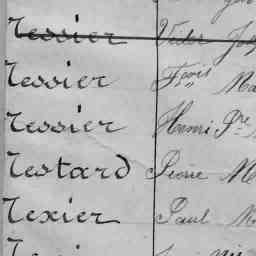 Tessier Victor
Tessier Fçois
Tessier Henri Pre
Testard Pierre
Texier Paul